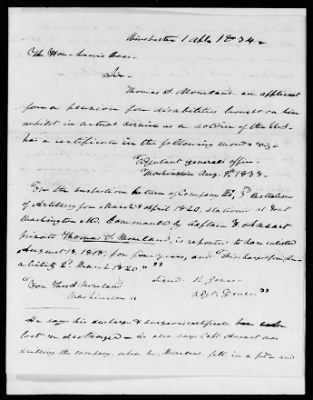 Winchester 1 Apl. 1834
The Hon. Lewis Cass
Sir
Thomas S. Moreland an applicant
for a pension for disabilities brought on him
whilst in actual service as a soldier of the U.S.
has a certificate in the following words
Adjutant generals office
Washington Aug. 9th 1833
"On the inspection return of Company 3d Battalion
of Artillery for March & April 1820, stationed at Fort
Washington Md. Commanded by Captain
private Thomas S. Moreland, is reported to have enlisted
August 18, 1818, for four years, and "discharged for disa
bility 2d March 1820."
Signed R. Jones
Adjt. General"
"To Thos. S. Moreland
Washington"
He says his discharge & surgeons certificate has been
lost or destroyed - he also says Capt. Stewart was
drilling the company when he, Moreland fell in a fit - and